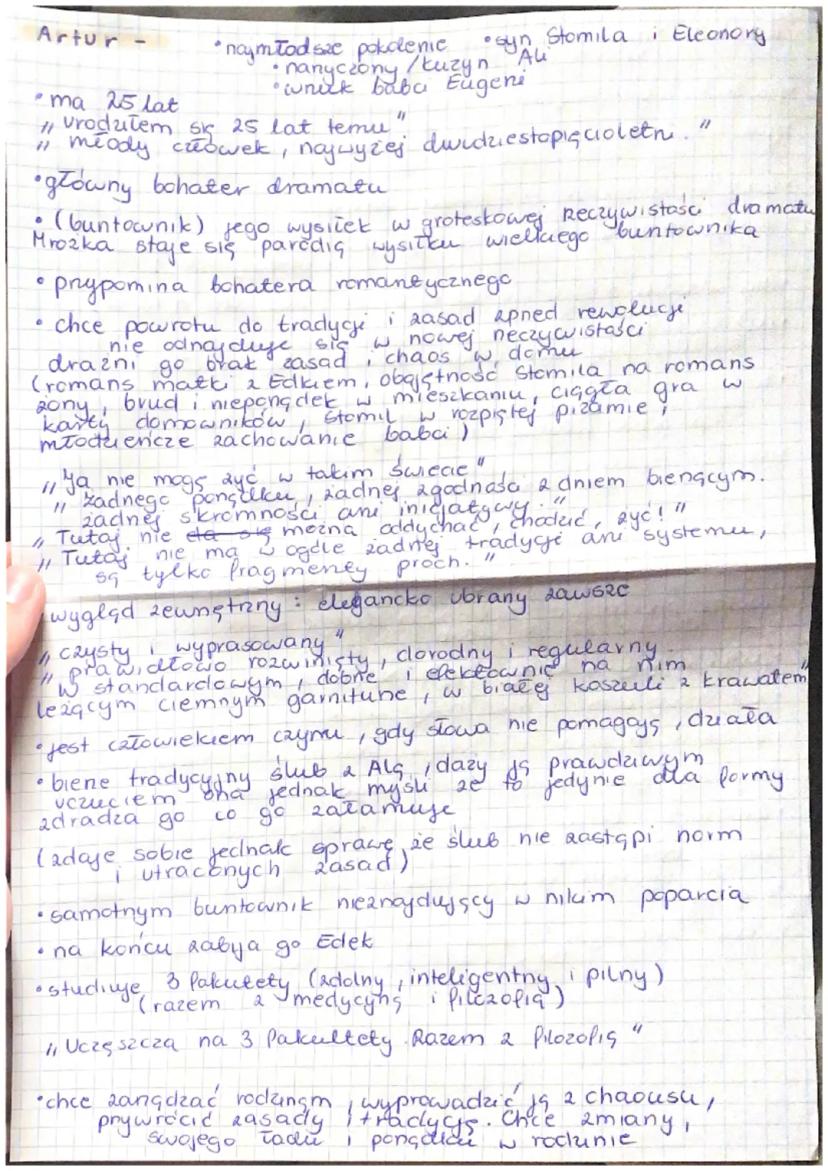 Artur - • najmłodsze pokolenie • syn Stomila i Eleonory
• narzyczony / kuzyn Ali
• wnuk babci Eugeni
• ma 25 lat
„urodziłem się 25 lat temu"
„młody człowiek, najwyżej dwudziestopięcioletni."
• główny bohater dramatu
• (buntownik) jego wysiłek w groteskowej rzeczywistości dramatu
Mrożka staje się parodią wysiłku wielkiego buntownika
• przypomina bohatera romantycznego
• chce powrotu do tradycji i zasad zprzed rewolucji
nie odnajduje się w nowej rzeczywistości
drażni go brak zasad i chaos w domu
(romans matki z Edkiem, obojętność Stomila na romans
żony, brud i nieporządek w mieszkaniu, ciągła gra w
karty domowników, Stomil w rozpiętej piżamie i
młodzieńcze zachowanie babci)
„Ja nie mogę żyć w takim świecie"
„Żadnego porządku, żadnej zgodności z dniem bieżącym.
żadnej skromności ani inicjatywy."
„Tutaj nie da się można oddychać, chodzić, żyć!"
„Tutaj nie ma w ogóle żadnej tradycji ani systemu,
są tylko fragmenty proch."
• wygląd zewnętrzny: elegancko ubrany zawsze
„czysty i wyprasowany"
„prawidłowo rozwinięty, dorodny i regularny.
W standardowym, dobrze i efektownie na nim
leżącym ciemnym garniturze, w białej koszuli z krawatem"
• jest człowiekiem czynu, gdy słowa nie pomagają, działa
• bierze tradycyjny ślub z Alą, daży ją prawdziwym
uczuciem ona jednak myśli że to jedynie dla formy
zdradza go co go załamuje
(zdaje sobie jednak sprawę, że ślub nie zastąpi norm
i utraconych zasad)
• samotnym buntownik nieznajdujący w nikim poparcia
• na końcu zabija go Edek
• studiuje 3 fakultety (zdolny, inteligentny i pilny)
(razem z medycyną i filozofią)
„Uczęszcza na 3 fakultety. Razem z filozofią"
• chce zarządzać rodziną, wyprowadzić ją z chaousu,
przywrócić zasady i tradycję. Chce zmiany,
swojego ładu i porządku w rodzinie